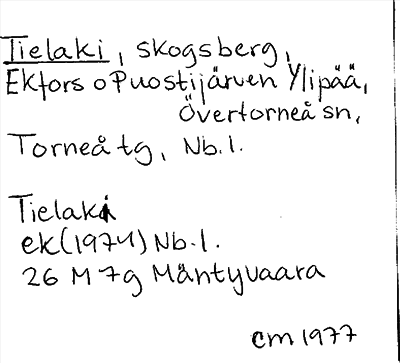 Tielaki, skogsberg,
Ekfors o Puostijärven Ylipää,
Övertorneå sn,
Torneå tg, Nb.l.
Tielaki
ek(1971) Nb.l.
26 M 7g Mäntyvaara
cm 1977